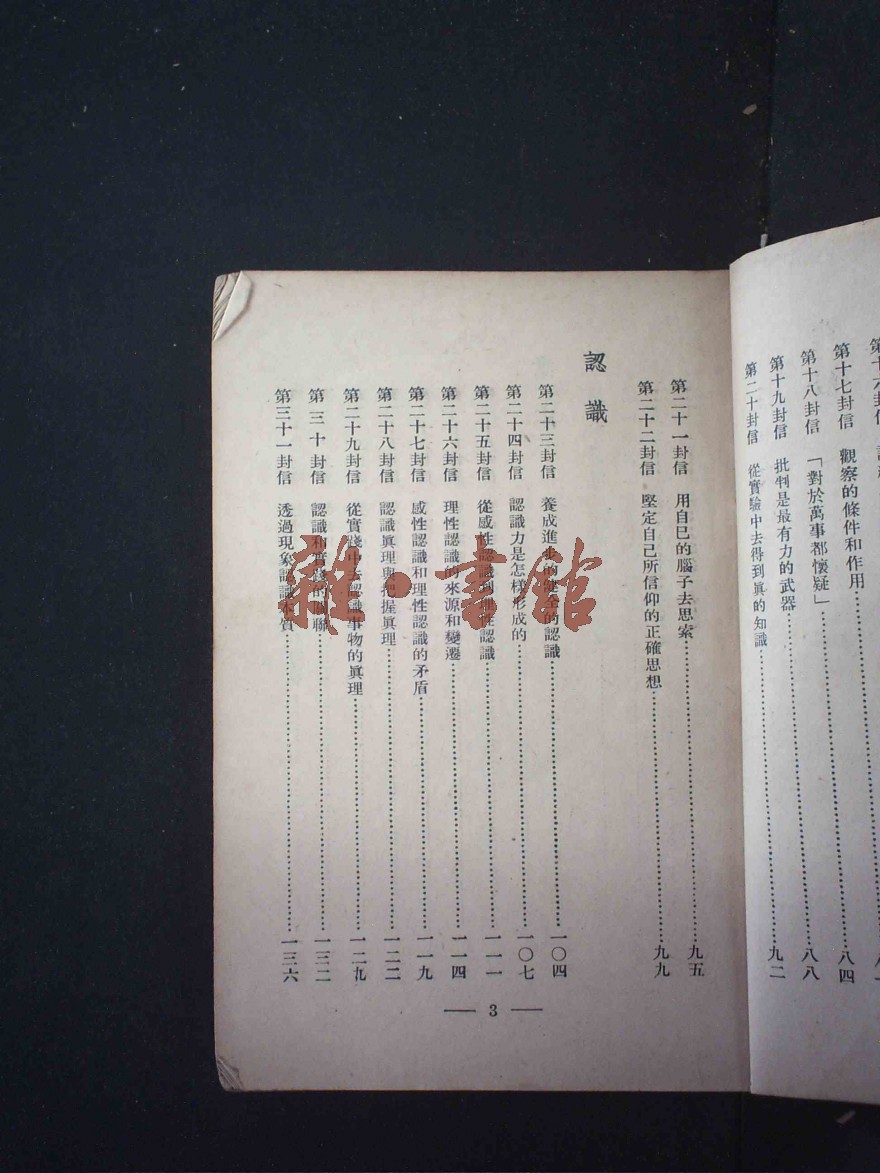 第十七封信　觀察的條件和作用……八四
第十八封信　「對於萬事都懷疑」……八八
第十九封信　批判是最有力的武器……九二
第二十封信　從實驗中去得到眞的知識……
第二十一封信　用自已的腦子去思索……九五
第二十二封信　堅定自己所信仰的正確思想……九九
認識
第二十三封信　養成進步的健全的認識……一〇四
第二十四封信　認識力是怎樣形成的……一〇七
第二十五封信　從感性認識到理性認識……一一一
第二十六封信　理性認識的來源和變遷……一一四
第二十七封信　感性認識和理性認識的矛盾……一一九
第二十八封信　認識眞理與把握眞理……一二二
第二十九封信　從實踐中去認識事物的眞理……一二九
第三十封信　認識和實踐的關聯……一三二
第三十一封信　透過現象認識本質……一三六
— 3 —
雜·書館